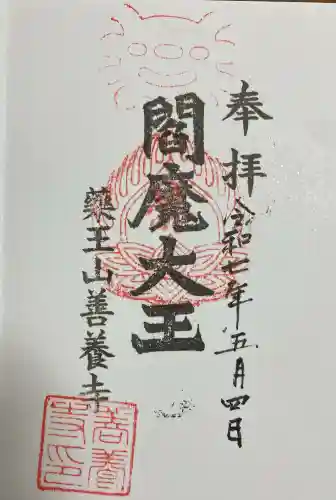 奉拝
令和七年五月四日
閻魔大王
藥王山善養寺
善養
寺印